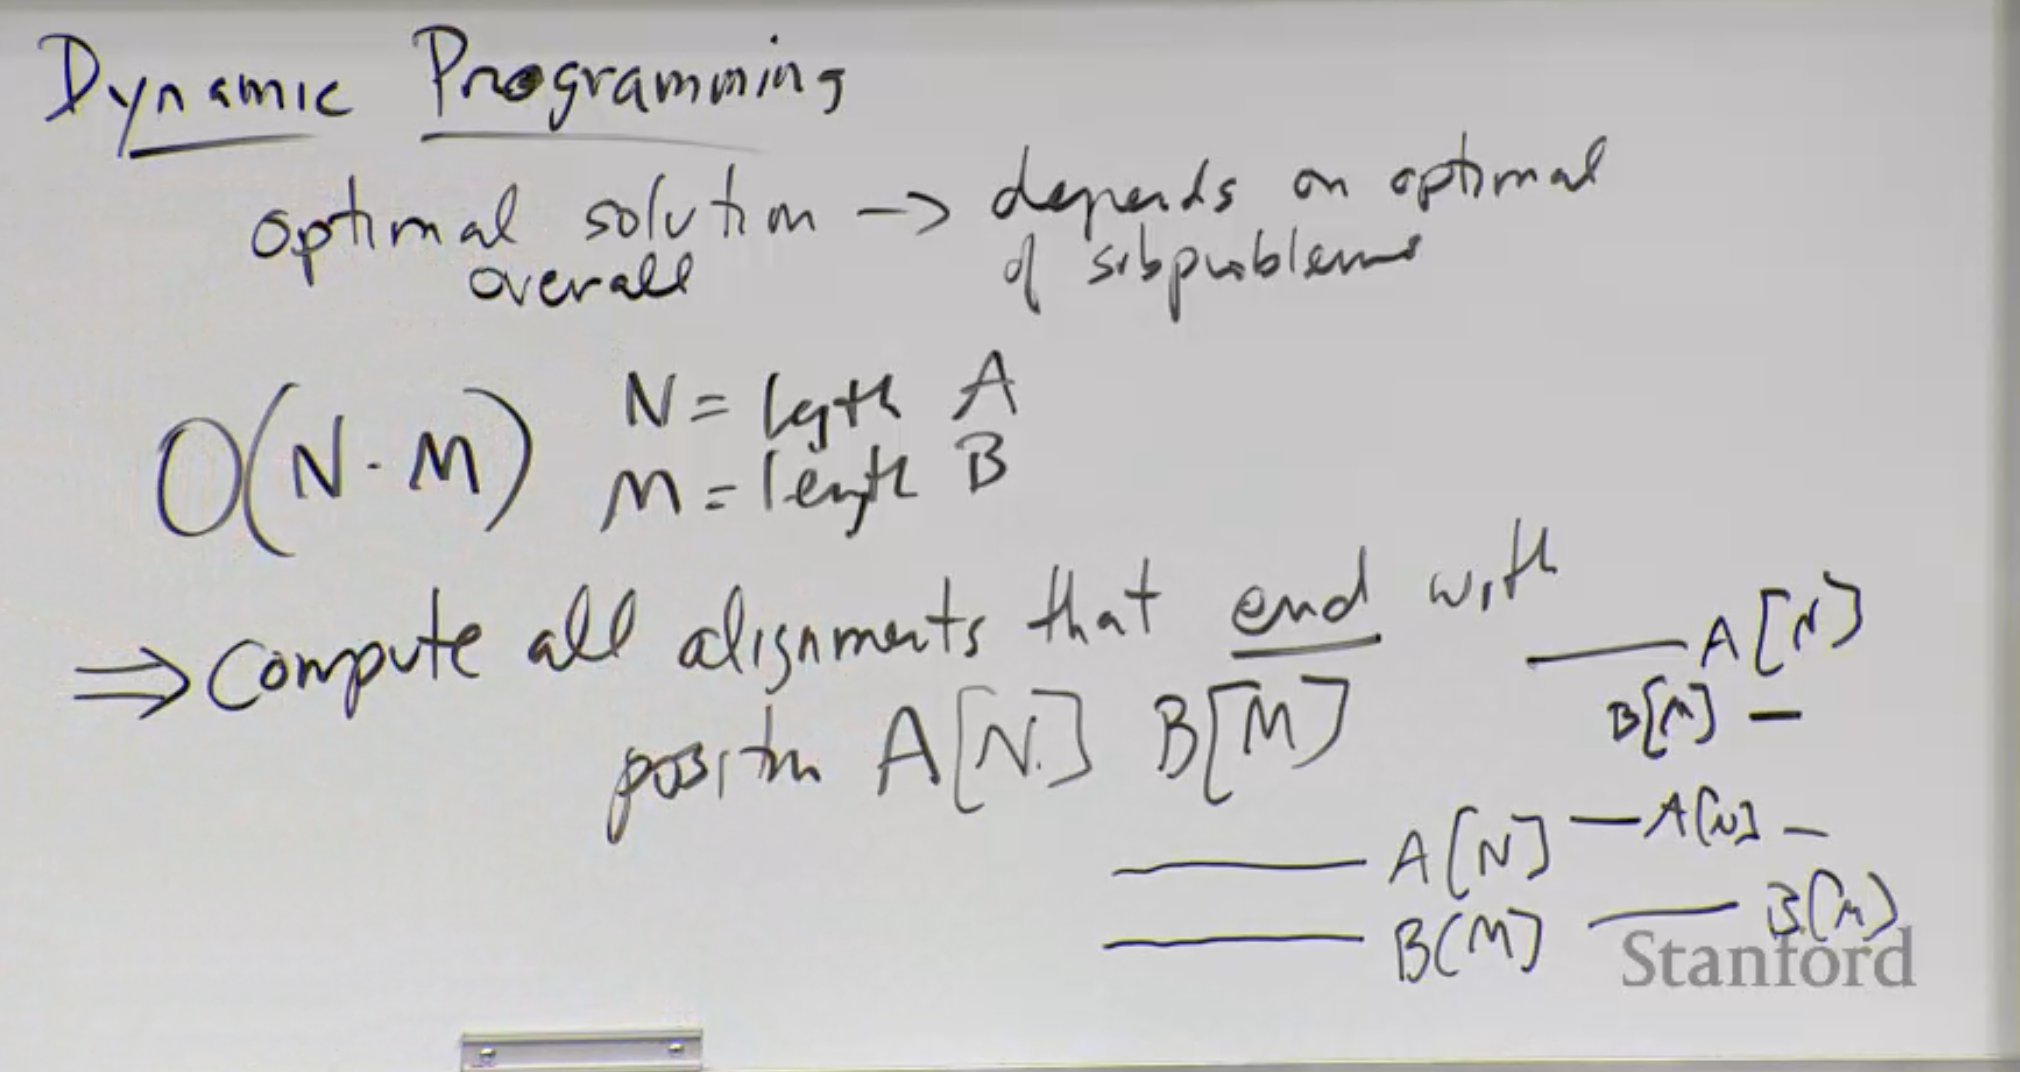 Dynamic Programming
optimal solution -> depends on optimal
overall of subproblems
O(N·M) N = length A
M = length B
=> Compute all alignments that end with
position A[N] B[M]
— A[N]
B[M] —
— A[N] —
— B[M]
— A[N]
— B[M]
Stanford